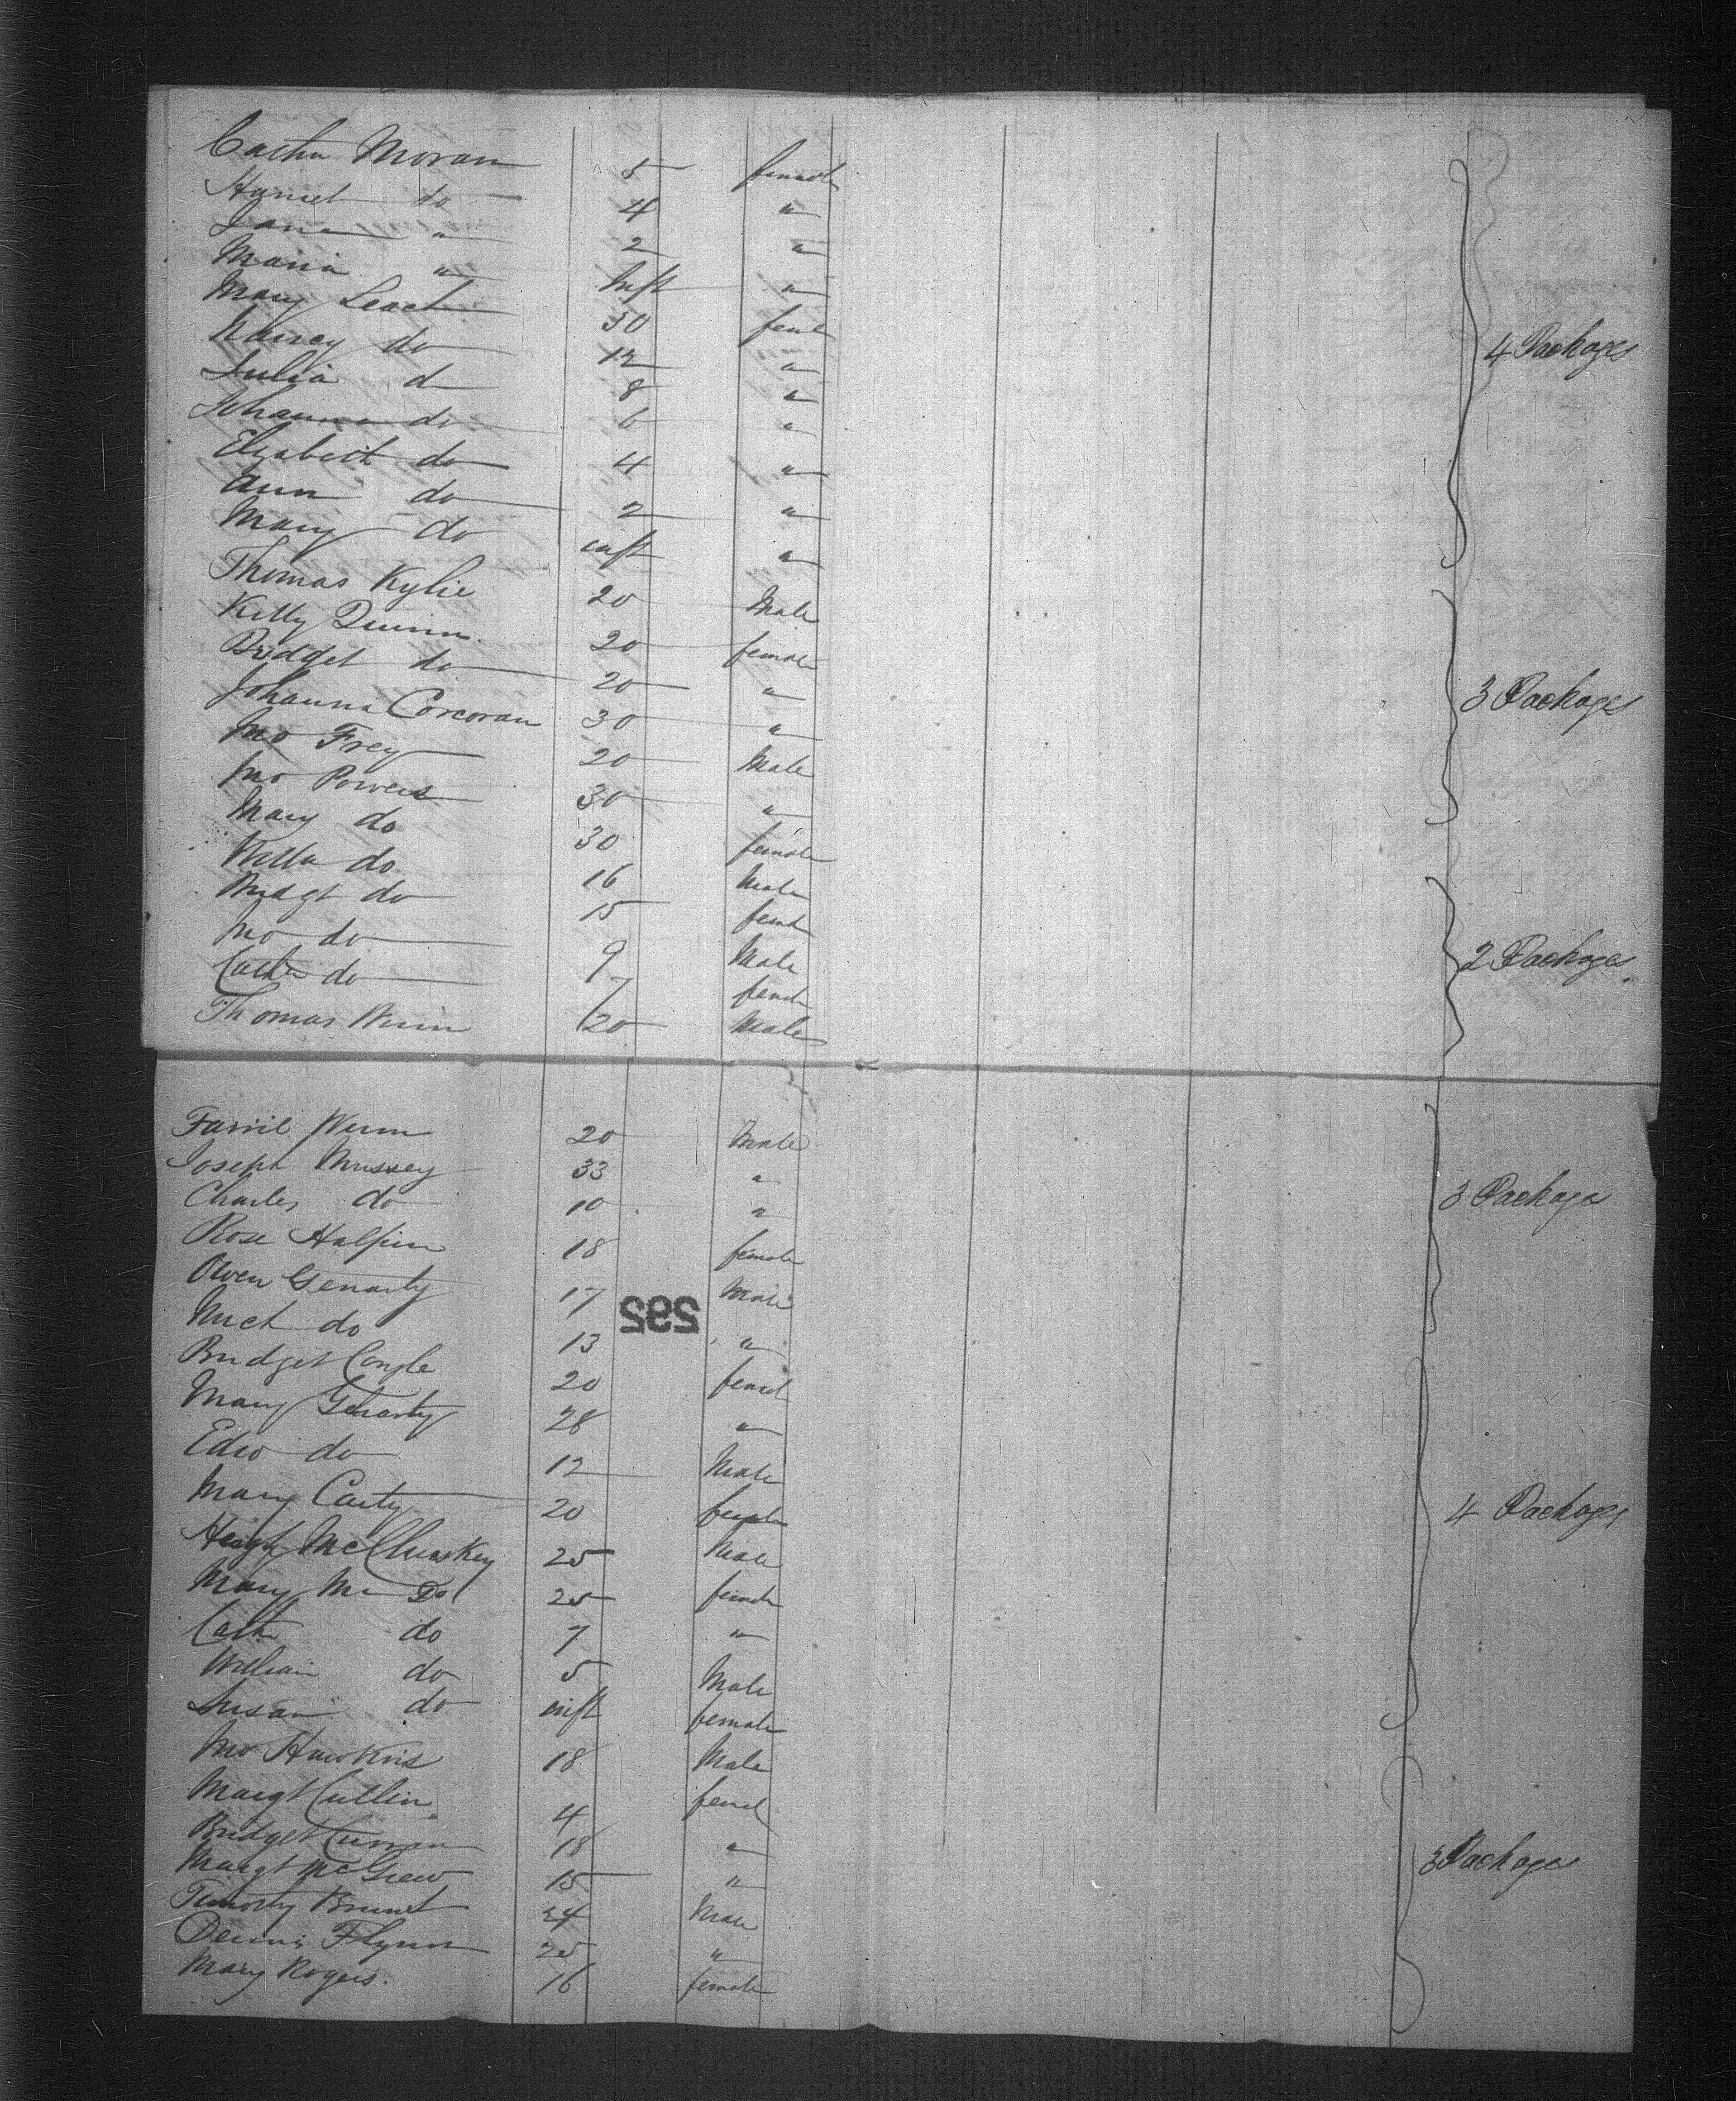 Cathn Moran 5 female
Harriet do 4 "
Jane " 2 "
Maria " Inft "
Mary Leach 30 feml
Nancy do 12 "
Julia d 8 " 4 Packages
Johanna do 6 "
Elizabeth do 4 "
Ann do 2 "
Mary do inft "
Thomas Kylie 20 Male
Kitty Quinn 20 female
Bridget do 20 "
Johanna Corcoran 30 " 3 Packages
Jno Frey 20 Male
Jno Powers 30 "
Mary do 30 female
Walter do 16 Male
Bridgt do 15 femal
Jno do 9 Male 2 Packages
Cathn do 7 femal
Thomas Winn 20 Male
Farril Winn 20 Male
Joseph Mussey 33 "
Charles do 10 " 3 Package
Rose Halpin 18 female
Owen Genarty 17 Male
292
Mich do 13 "
Bridget Coyle 20 femal
Mary Genarty 28 "
Edwd do 12 Male
Mary Carty 20 female 4 Packages
Hugh McCluskey 25 Male
Mary Mc Do 25 female
Cath do 7 "
William do 5 Male
Susan do inft female
Jno Hawkins 18 Male
Margt Cullin 4 femal
Bridget Curran 18 " 3 Packages
Margt McGrew 15 "
Timothy 24 Male
Dennis Flynn 25 "
Mary Rogers. 16 female